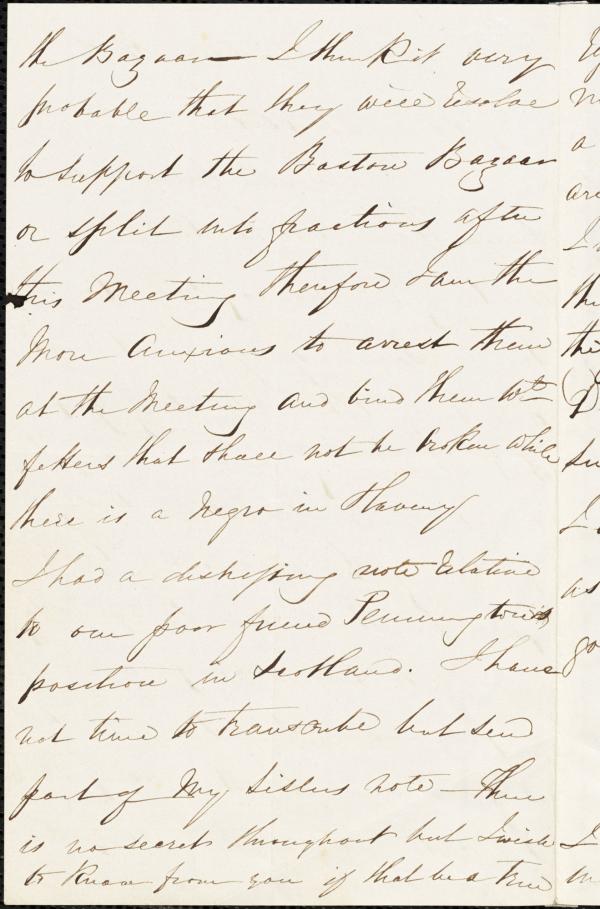 the Bazaar — I think it very
probable that they will resolve
to support the Boston Bazaar
or split into fractions after
this Meeting therefore I am the
More Anxious to arrest them
at the Meeting and bind them Wth
fetters that shall not be broken while
there is a Negro in Slavery
I had a distressing note relative
to our poor friend Pennington's
position in Scotland. I have
not time to transcribe but send
part of My Sisters note — There
is no secrets throughout but I wish
to know from you if that be a true